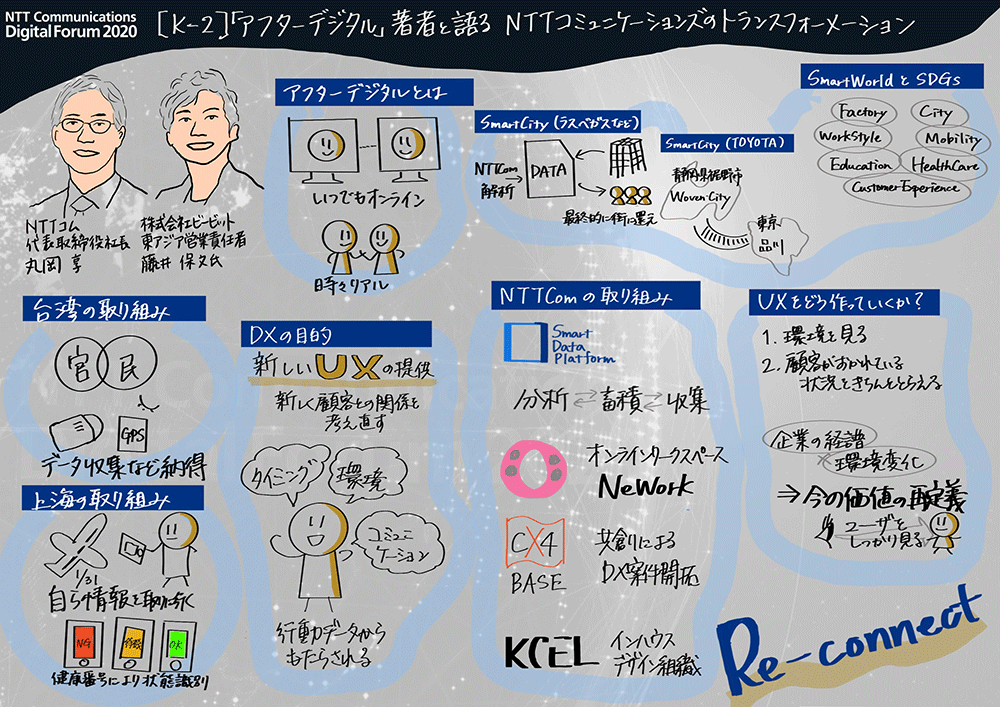 NTT Communications
Digital Forum 2020
[K-2]「アフターデジタル」著者と語る NTTコミュニケーションズのトランスフォーメーション
NTTコム
代表取締役社長
丸岡 亨
株式会社ビービット
東アジア営業責任者
藤井 保文氏
アフターデジタルとは
いつでもオンライン
時々リアル
SmartCity (ラスベガスなど)
NTTCom
解析
DATA
最終的に街に還元
SmartCity (TOYOTA)
静岡県裾野市
Woven City
東京
品川
SmartWorldとSDGs
Factory
City
WorkStyle
Mobility
Education
HealthCare
Customer Experience
台湾の取り組み
官
民
GPS
データ収集など納得
上海の取り組み
1/31
自ら情報を取りに行く
NG
待機
OK
健康番号により状態識別
DXの目的
新しいUXの提供
新しく顧客との関係を
考え直す
タイミング
環境
コミュニ
ケーション
行動データから
もたらされる
NTTComの取り組み
Smart
Data
Platform
分析⇄蓄積⇄収集
オンラインワークスペース
NeWork
CX4
BASE
共創による
DX案件開拓
KOEL
インハウス
デザイン組織
UXをどう作っていくか?
1. 環境を見る
2. 顧客がおかれている
状況をきちんととらえる
企業の経譜
×
環境変化
⇒今の価値の再定義
ユーザを
しっかり見る
Re-connect